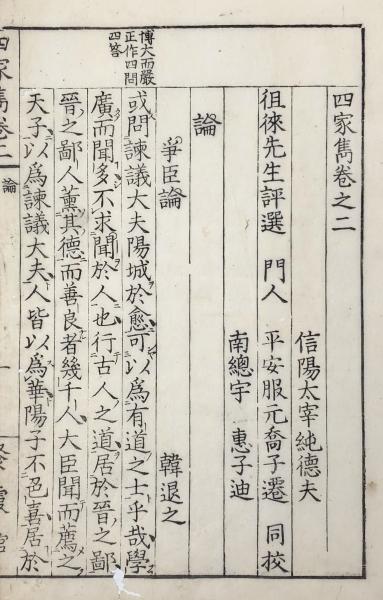 四家雋卷之二
信陽太宰純德夫
徂徠先生評選 門人 平安服元喬子遷 同挍
南總宇 惠子迪
論
爭臣論 韓退之
博大而嚴
正作四問
四答
或問諫議大夫陽城於愈可以為有道之士乎哉學
廣而聞多不求聞於人也行古人之道居於晉之鄙
晉之鄙人薫其德而善良者幾千人大臣聞而薦之
天子以為諫議大夫人皆以為華陽子不色喜居於
四家雋卷二 論 一